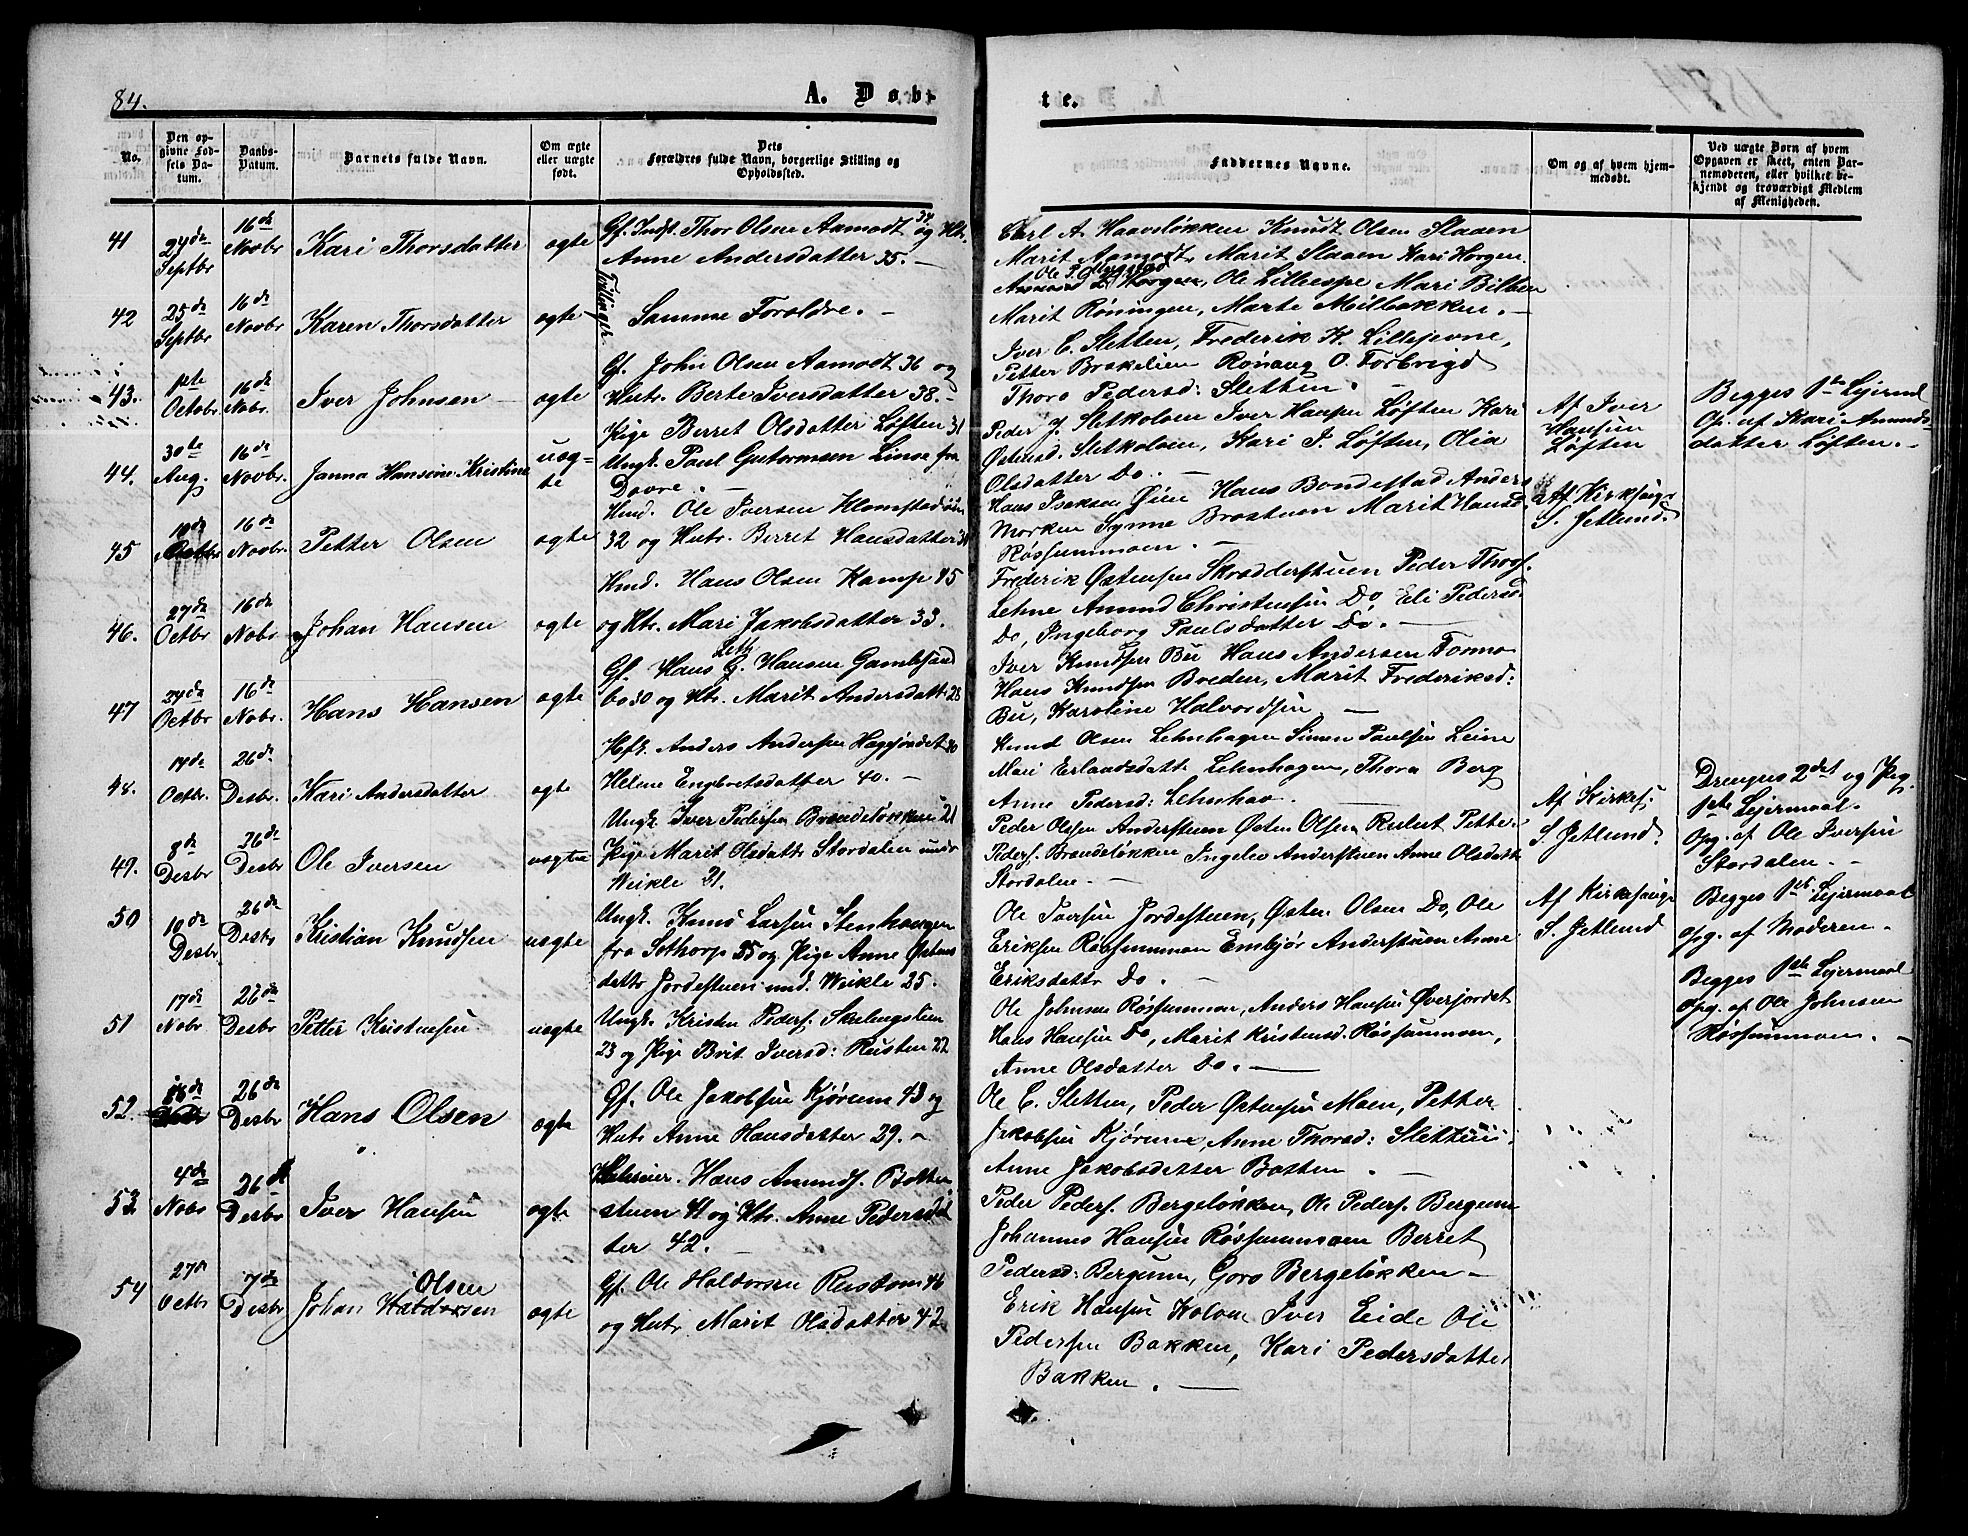 84.
A. Døb-
te.
No.
Den op-
givne Fød-
sels Da-
tum.
Daabs-
Datum.
Barnets fulde Navn.
Om ægte
eller uægte
født.
Dets
Forældres fulde Navn, borgerlige Stilling og
Opholdssted.
Faddernes Navne.
Om og af hvem hjem-
medøbt.
Ved uægte Børn af hvem
Opgaven er skeet, enten Bar-
nemoderen, eller hvilket be-
kjendt og troværdigt Medlem
af Menigheden.
41
24de
Septbr
16de
Novbr
Kari Thorsdatter
ægte
Gf. Indst. Thor Olsen Aamodt 34 og Htr.
Anne Andersdatter 35. —
Carl A. Haaveløkken Knudt Olsen Slaaen
Marit Aamodt, Marit Slaaen Kari Horgen
42
25de
Septbr
16de
Novbr
Karen Thorsdatter
ægte
Tvillinger
Samme Forældre. —
Horgen, Ole Lilleespe Mari Bilben
Marit Røningen, Marte Milbakken. —
43.
1ste
Octobr
16de
Nobr.
Iver Johnsen
ægte
Gf. John Olsen Aamodt 36 og
Hustr. Berte Iversdatter 38. —
Iver C. Sletten, Frederik K. Lillejevne,
Petter Brækelien Rønaug O. Forbrigd
Thora Pedersd: Sletten.
44.
30te
Aug.
16de
Novbr
Janna Hansine Kristine
uæg-
te
Pige Berret Olsdatter Løften 31
Ungk. Paul Guttormsen Linse fra
Dovre. —
Peder J. Sletkolsen Iver Hansen Løften Kari
Østensd. Sletkolsen, Kari I. Løften, Olia
Olsdatter Do. —
Af Iver
Hansen
Løften
Begges 1ste Lejerml
Op. af Kari Amunds-
datter Løften. —
45
16de
Novbr.
Petter Olsen
ægte
Hmd. Ole Iversen Klomstadøien
32 og Hutr. Berret Hansdatter 31
Hans Iseksen Øien Hans Bondestad Anders
Morken Synne Brostuen Marit Hansd.
Røssummoen. —
Af Kirkesang.
S. Jetlund.
46.
27de
Octbr
16de
Nobr
Johan Hansen
ægte
Hmd. Hans Olsen Kamp 45
og Htr. Mari Jakobsdatter 33.
Frederik Østensen Skrædderstuen Peder Thorf.
Lehne Amund Christensen Do, Eli Pedersd.
Do, Ingeborg Paulsdatter Do. —
47
24de
Octbr
16de
Nobr.
Hans Hansen
ægte
Gf. Hans G. Hansen Gamlesand
bo 30 og Htr. Marit Andersdatt. 28
Iver Knudsen Bu Hans Andersen Formo
Hans Knudsen Breden, Marit Frederiksd:
Bu, Karoline Halvordsen —
48.
14de
Octbr.
26de
Desbr.
Kari Andersdatter
ægte
Hfz. Anders Andersen Hagejordet 30
Helene Engbretsdatter 40. —
Knud Olsen Lehnhagen Simen Paulsen Leine
Mari Erlandsdatt. Lehnhagen, Thora Berg
Anne Pedersd: Lehnhav. —
49.
8de
Desbr
26de
Desbr
Ole Iversen
uægte
Ungk. Iver Pedersen Brændeløkken 21
Pige Marit Olsdatt. Stordalen undr
Weikle 21.
Peder Olsen Anderstuen Østen Olsen Rulut Petter
Peders. Brændeløkken Ingelev Anderstuen Anne Olsdatt
Stordalen. —
Af Kirkes;
S. Jetlund.
Drenges 2det og Pig.
1ste Lejermaal.
Opg. af Ole Iversen
Stordalen. —
50
10de
Desbr.
26de
Desbr
Kristian Knudsen
uægte
Ungk. Knud Larsen Stenhaugen
fra Sothorp 55 og Pige Anne Østens
datter Jordestuen und. Weikle 25.
Ole Iversen Jordestuen, Østen Olsen Do, Ole
Eriksen Røssummoen Embjør Anderstuen Anne
Eriksdattr Do. —
Af Kirkesang.
S. Jetlund
Begges 1ste Lejermaal
Opg. af Moderen.
51
17de
Nobr
26de
Desbr
Petter Kristensen
uægte
Ungk. Kristen Peders; Skrelingslien
23 og Pige Brit Iversd: Rusten 22
Ole Johnsen Røssummoen, Anders Hansen Øverjordet
Hans Hansen Do, Marit Kristensd. Røssummoen,
Anne Olsdatter Do. —
Begges 1ste Lejermaal
Opg. af Ole Johnsen
Røssummoen. —
52.
26de
Desbr
Hans Olsen
ægte
Gf. Ole Jakobsen Kjørum 43 og
Hutr Anne Hansdatter 29. —
Ole C. Sletten, Peder Østensen Moen, Petter
Jakobsen Kjørum, Anne Thorsd: Sletten
Anne Jakobsdatter Botten. —
53
4de
Nobr
26de
Desbr
Iver Hansen
ægte
Hans Amunds. Botten
stuen 41 og Htr. Anne Pedersdat
ter 42. —
Peder Peders. Bergeløkken, Ole Peders. Bergum
Johannes Hansen Røssummoen Berret
Pedersd: Bergum, Goro Bergeløkken —
54
27de
Octbr
7de
Desbr
Olsen
Johan Haldorsen
ægte
Gf. Ole Haldorsen Rusdom 46
og Hutr Marit Olsdatter 42
Erik Hansen Kolven Iver Eide Ole
Pedersen Bakken, Kari Pedersdatter
Bakken. —